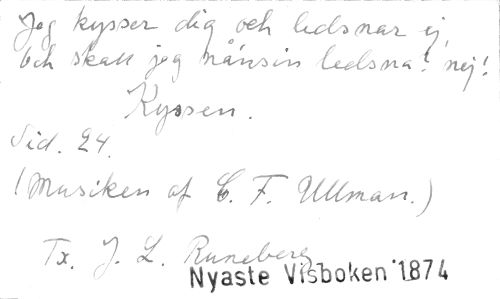 Jeg kysser dig och ledsnar ej,
och skall jag nånsin ledsna? nej!
Kyssen.
Sid. 24.
(Musiken af C. F. Ullman.)
Tx. J. L. Runeberg
Nyaste Visboken 1874